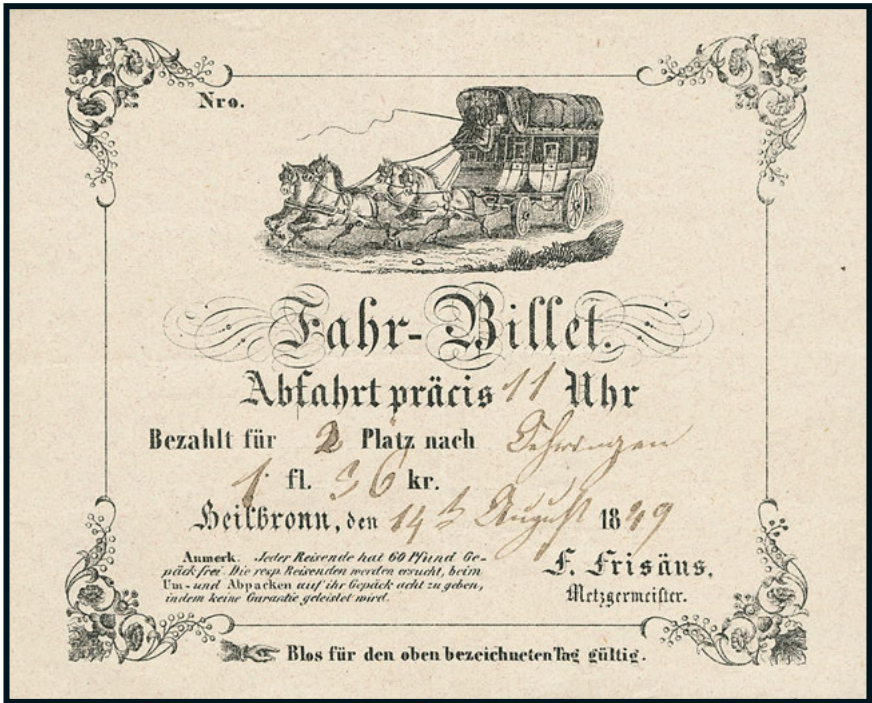 Nro.
Fahr-Billet.
Abfahrt präcis 11 Uhr
Bezahlt für 2 Plätz nach Oehringen
1 fl. 36 kr.
Heilbronn, den 14t August 1849
Anmerk. Jeder Reisende hat 60 Pfund Ge-
päck frei. Die resp. Reisenden werden ersucht, beim
Um- und Abpacken auf ihr Gepäck acht zu geben,
indem keine Garantie geleistet wird.
F. Frisäus,
Metzgermeister.
Blos für den oben bezeichneten Tag gültig.